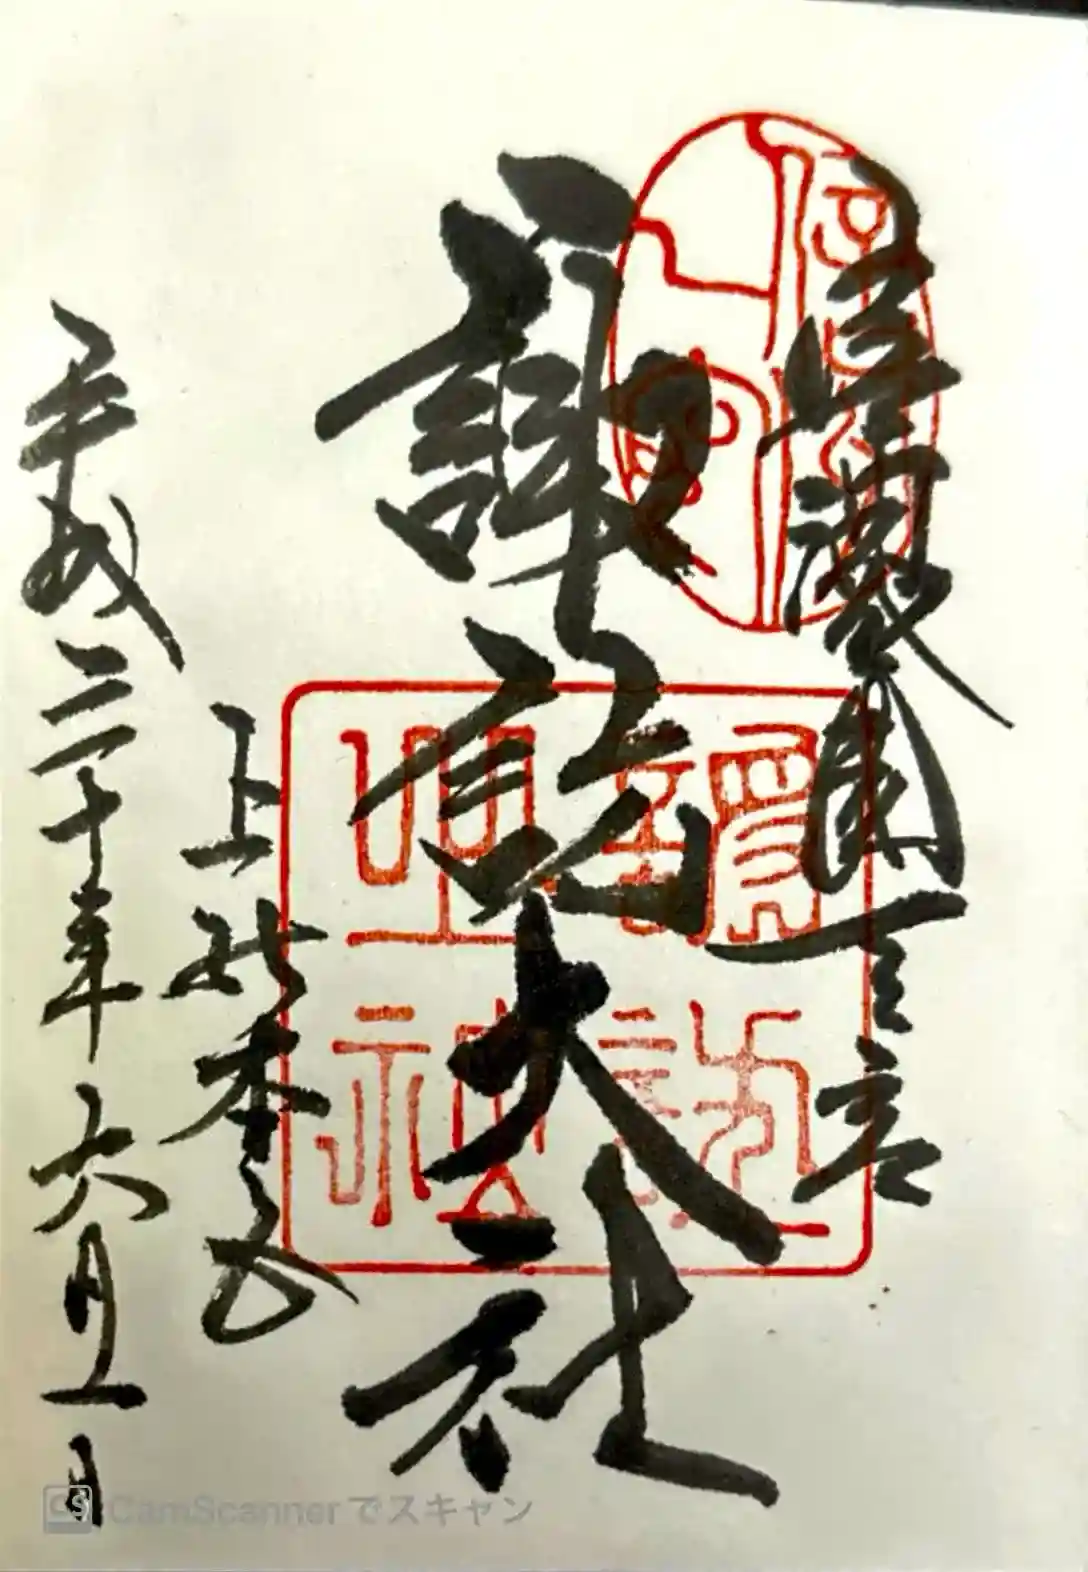 信濃國一之宮
諏訪大社
上社本宮
平成二十年六月一日
CamScannerでスキャン